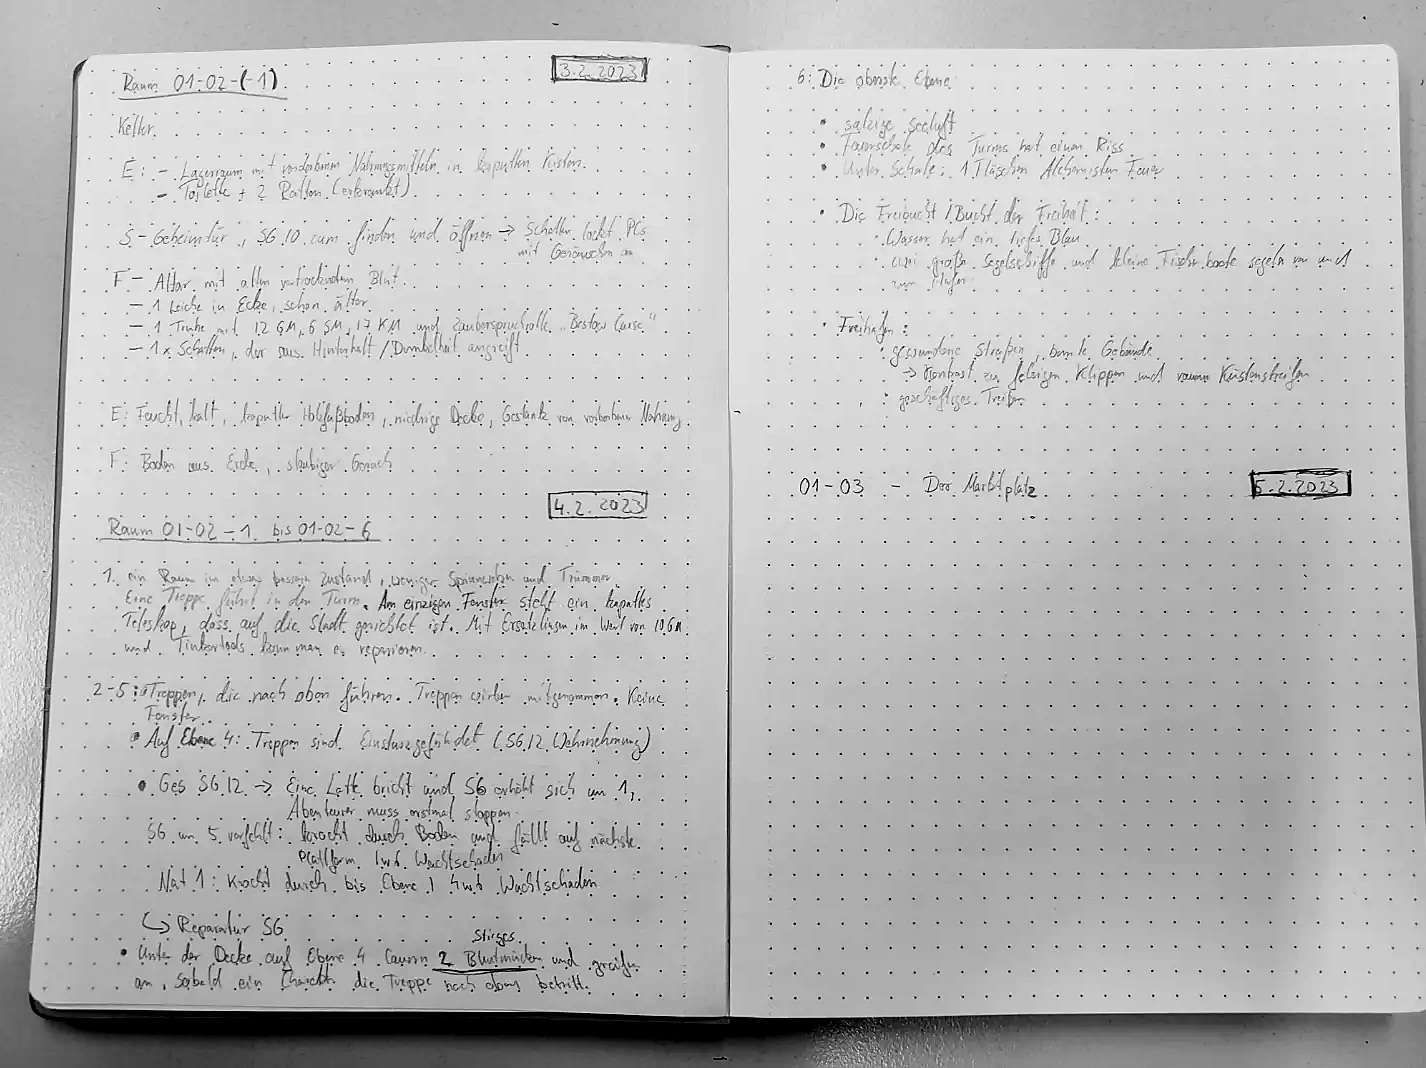 Raum 01-02-(-1)
3.2.2023
Keller
E: - Lagerraum mit verdorbenen Nahrungsmitteln in kaputten Kisten.
- Toilette + 2 Ratten (erkrankt)
S - Geheimtür, SG 10 zum finden und öffnen → Schatten lockt PCs
mit Geräuschen an
F - Altar mit altem vertrocknetem Blut
- 1 Leiche in Ecke, schon älter
- 1 Truhe mit 12 GM, 6 SM, 17 KM und Zauberspruchrolle „Bestow Curse"
- 1x Schatten, der aus Hinterhalt / Dunkelheit angreift
E: Feucht, kalt, kaputter Holzfußboden, niedrige Decke, Gestank von verdorbener Nahrung
F: Boden aus Erde, staubiger Geruch
4.2.2023
Raum 01-02-1 bis 01-02-6
1. ein Raum im etwas besseren Zustand, weniger Spinnweben und Trümmer
Eine Treppe führt in den Turm. Am einzigen Fenster steht ein kaputtes
Teleskop, dass auf die Stadt gerichtet ist. Mit Ersatzlinsen im Wert von 10 GM
und Tinkertools kann man es reparieren.
2-5: Treppen, die nach oben führen. Treppen wirken mitgenommen. Keine
Fenster.
• Auf Ebene 4: Treppen sind Einsturzgefährdet (SG 12 Wahrnehmung)
• Ges SG 12 → Eine Latte bricht und SG erhöht sich um 1,
Abenteurer muss erstmal stoppen
SG um 5 verfehlt: kracht durch Boden und fällt auf nächste
Plattform 1w6 Wuchtschaden
Nat 1: Kracht durch bis Ebene 1 4w6 Wuchtschaden
↳ Reparatur SG
Stirges
• Unter der Decke auf Ebene 4 lauern 2 Blutmücken und greifen
an, sobald ein Charakter die Treppe nach oben betritt.
6: Die oberste Ebene
• salzige Seeluft
• Feuerschale des Turms hat einen Riss
• Unter Schale: 1 Fläschen Alchemisten Feuer
• Die Freibucht / Bucht der Freiheit:
• Wasser hat ein tiefes Blau
• zwei große Segelschiffe und kleine Fischerboote segeln von und
zum Hafen
• Freihafen:
• gewundene Straßen, bunte Gebäude
→ Kontrast zu felsigen Klippen und rauen Küstenstreifen
• geschäftiges Treiben
01-03 - Der Marktplatz
5.2.2023